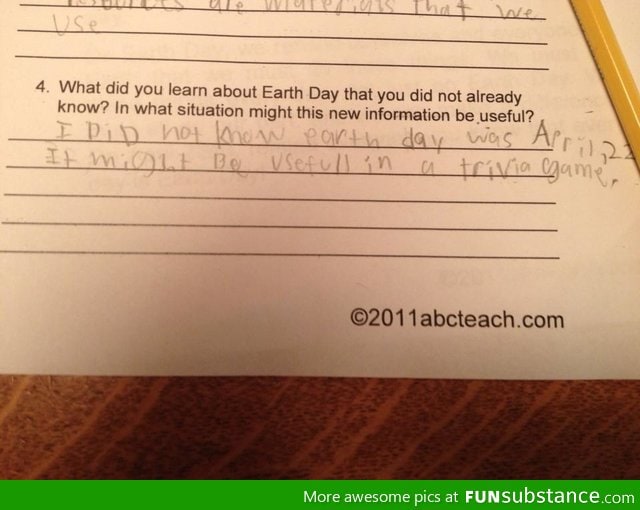 resources are materials that we
use
4. What did you learn about Earth Day that you did not already
know? In what situation might this new information be useful?
I DiD not know earth day was April, 22
It might Be usefull in a trivia game.
©2011abcteach.com
More awesome pics at FUNsubstance.com